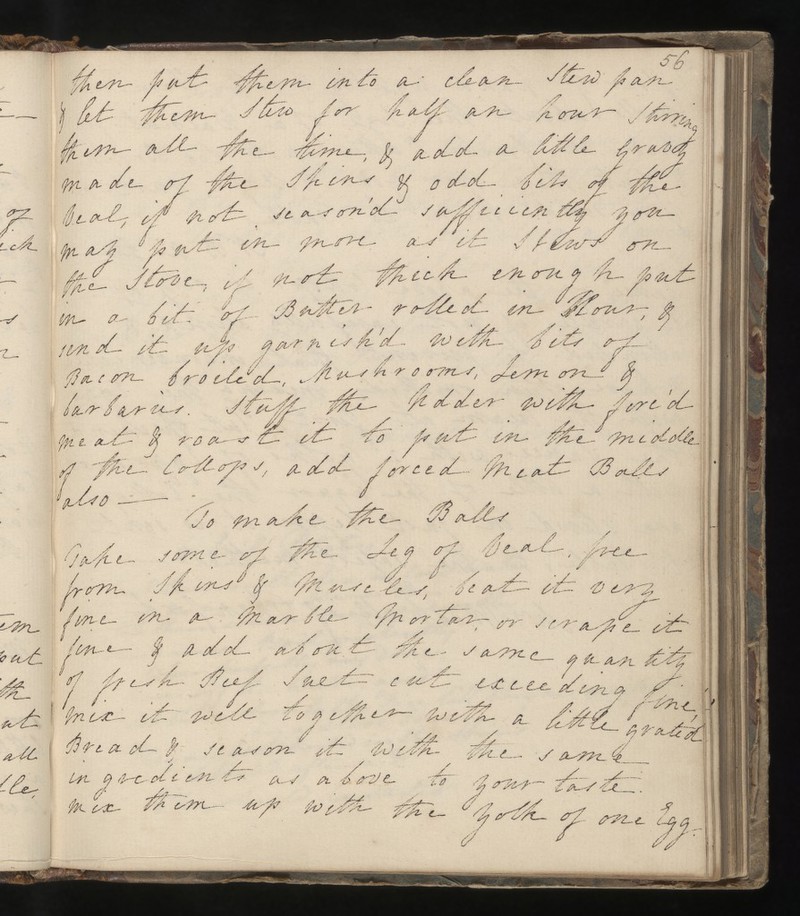 56
then put them into a clean Stew pan
& let them Stew for half an hour Stirring
them all the time, & add a little Gravy
made of the Skins & odd bits of the
Veal, if not season'd sufficiently you
may put in more as it Stews on
the Stove, if not thick enough put
in a bit of Butter rolled in Flour, &
send it up garnish'd with bits of
Bacon broiled, Mushrooms, Lemon &
barbaries. Stuff the Udder with forc'd
meat & roast it to put in the middle
of the Collops, add forced Meat Balls
also —
To make the Balls
Take some of the Leg of Veal, free
from Skins & Muscles, beat it very
fine in a Marble Mortar, or scrape it
fine & add about the same quantity
of fresh Beef Suet cut exceeding fine,
mix it well together with a little grated
Bread & season it with the same
ingredients as above to your taste.
mix them up with the Yolk of one Egg.